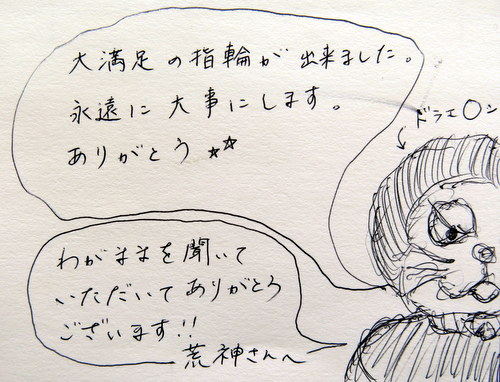 大満足の指輪が出来ました。
永遠に大事にします。
ありがとう☆☆
ドラエ〇ン
わがままを聞いて
いただいてありがとう
ございます!!
荒神さんへ